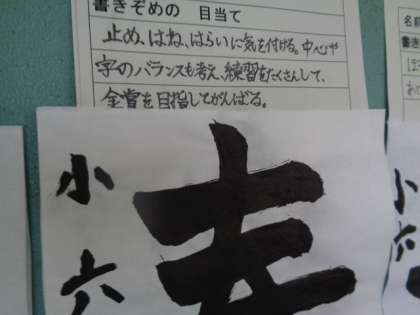 書きぞめの 目当て
止め、はね、はらいに気を付ける。中心や
字のバランスも考え、練習をたくさんして、
金賞を目指してがんばる。
小六
名前
書き